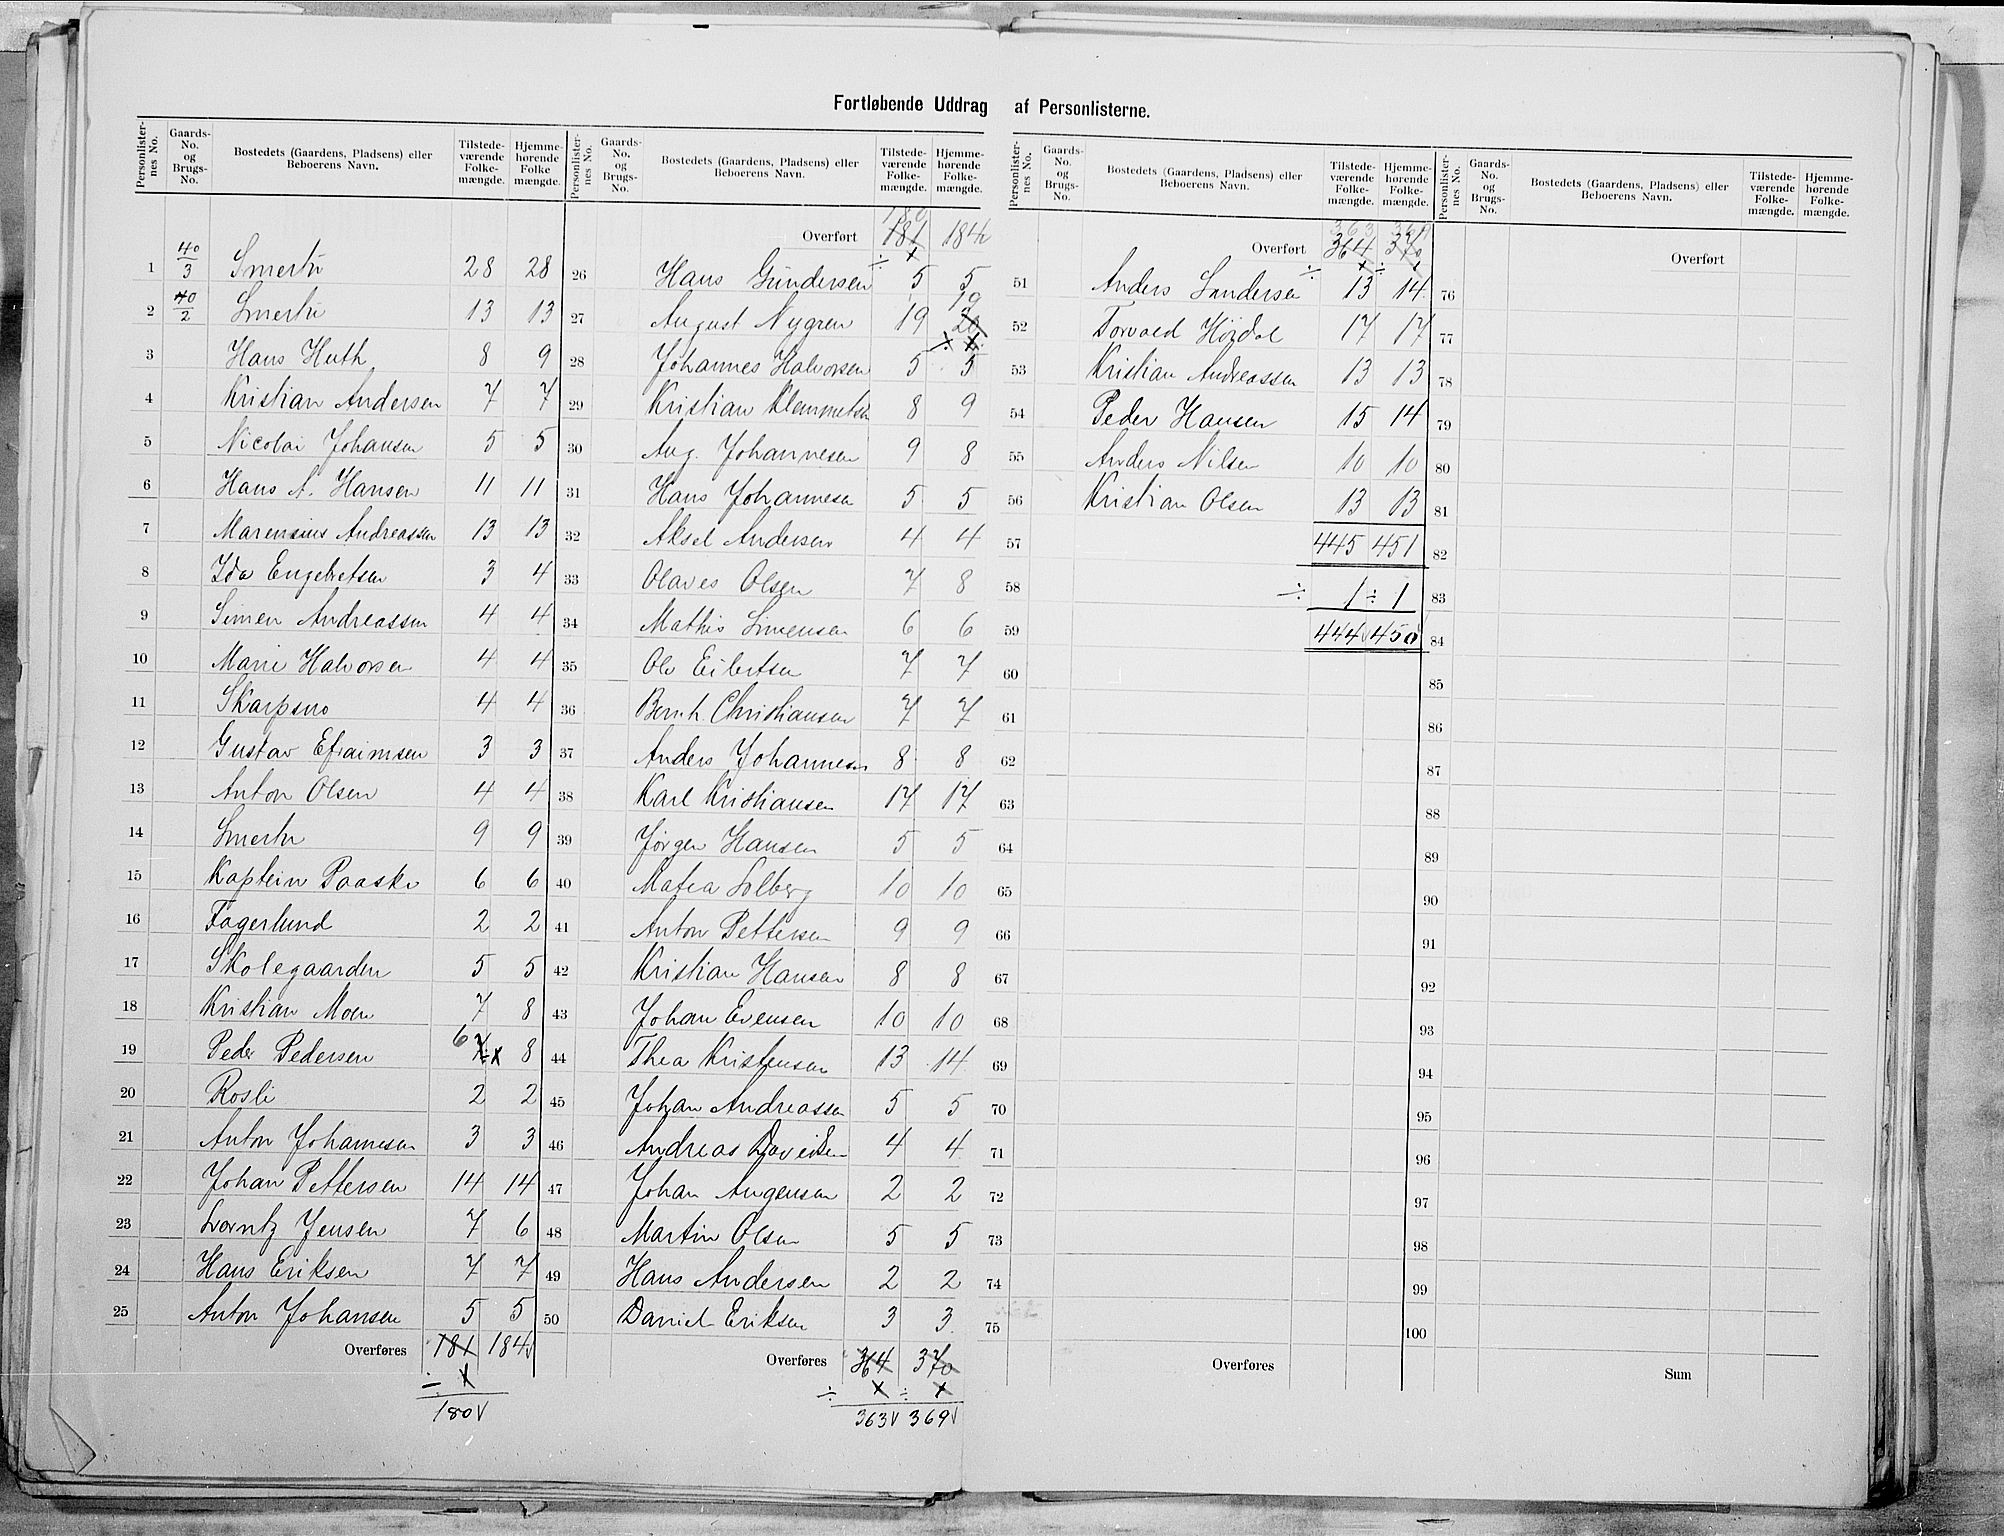 Fortløbende Uddrag af Personlisterne.
Personlisternes No. | Gaards-No. og Brugs-No. | Bostedets (Gaardens, Pladsens) eller Beboerens Navn. | Tilstedeværende Folkemængde. | Hjemmehørende Folkemængde.
1 40/3 Smertu 28 28
2 40/2 Smertu 13 13
3 Hans Huth 8 9
4 Kristian Andersen 7 7
5 Nicolai Johansen 5 5
6 Hans A. Hansen 11 11
7 Marensius Andreassen 13 13
8 Ida Engebretsen 3 4
9 Simen Andreassen 4 4
10 Marie Halvorsen 4 4
11 Skarpsno 4 4
12 Gustav Efraimsen 3 3
13 Anton Olsen 4 4
14 Smertu 9 9
15 Kaptein Paaske 6 6
16 Fagerlund 2 2
17 Skolegaarden 5 5
18 Kristian Moen 7 8
19 Peder Pedersen 6 8
20 Rosli 2 2
21 Anton Johannesen 3 3
22 Johan Pettersen 14 14
23 Lorntz Jensen 7 6
24 Hans Eriksen 7 7
25 Anton Johansen 5 5
Overføres 181 184
÷ 1
180
Personlisternes No. | Gaards-No. og Brugs-No. | Bostedets (Gaardens, Pladsens) eller Beboerens Navn. | Tilstedeværende Folkemængde. | Hjemmehørende Folkemængde.
180
Overført 181 184
÷ 1
26 Hans Gundersen 5 5
27 August Nygren 19 20 19
÷ 1
28 Johannes Halvorsen 5 5
29 Kristian Klemmetsen 8 9
30 Aug. Johannesen 9 8
31 Hans Johannesen 5 5
32 Aksel Andersen 4 4
33 Olaves Olsen 7 8
34 Mathis Simensen 6 6
35 Ole Eilertsen 7 7
36 Bernh. Christiansen 7 7
37 Anders Johannesen 8 8
38 Karl Kristiansen 17 17
39 Jørgen Hansen 5 5
40 Matea Solberg 10 10
41 Anton Pettersen 9 9
42 Kristian Hansen 8 8
43 Johan Evensen 10 10
44 Thea Kristensen 13 14
45 Johan Andreassen 5 5
46 Andreas Davidsen 4 4
47 Johan Augensen 2 2
48 Martin Olsen 5 5
49 Hans Andersen 2 2
50 Daniel Eriksen 3 3
Overføres 364 370
÷ 1 ÷ 1
363 369
Personlisternes No. | Gaards-No. og Brugs-No. | Bostedets (Gaardens, Pladsens) eller Beboerens Navn. | Tilstedeværende Folkemængde. | Hjemmehørende Folkemængde.
363 369
Overført 364 370
÷ 1 ÷ 1
51 Anders Sandersen 13 14
52 Torvald Højdal 17 17
53 Kristian Andreassen 13 13
54 Peder Hansen 15 14
55 Anders Nilsen 10 10
56 Kristian Olsen 13 13
57 445 451
58 ÷ 1 ÷ 1
59 444 450
60
61
62
63
64
65
66
67
68
69
70
71
72
73
74
75
Overføres
Personlisternes No. | Gaards-No. og Brugs-No. | Bostedets (Gaardens, Pladsens) eller Beboerens Navn. | Tilstedeværende Folkemængde. | Hjemmehørende Folkemængde.
Overført
76
77
78
79
80
81
82
83
84
85
86
87
88
89
90
91
92
93
94
95
96
97
98
99
100
Sum